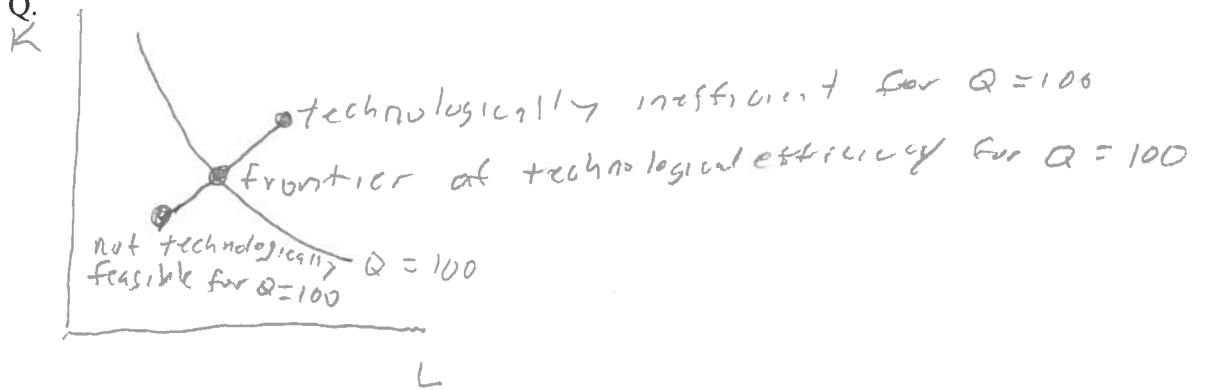 Q.
K
technologically inefficient for Q = 100
frontier of technological efficiency for Q = 100
not technologically
feasible for Q=100
Q = 100
L